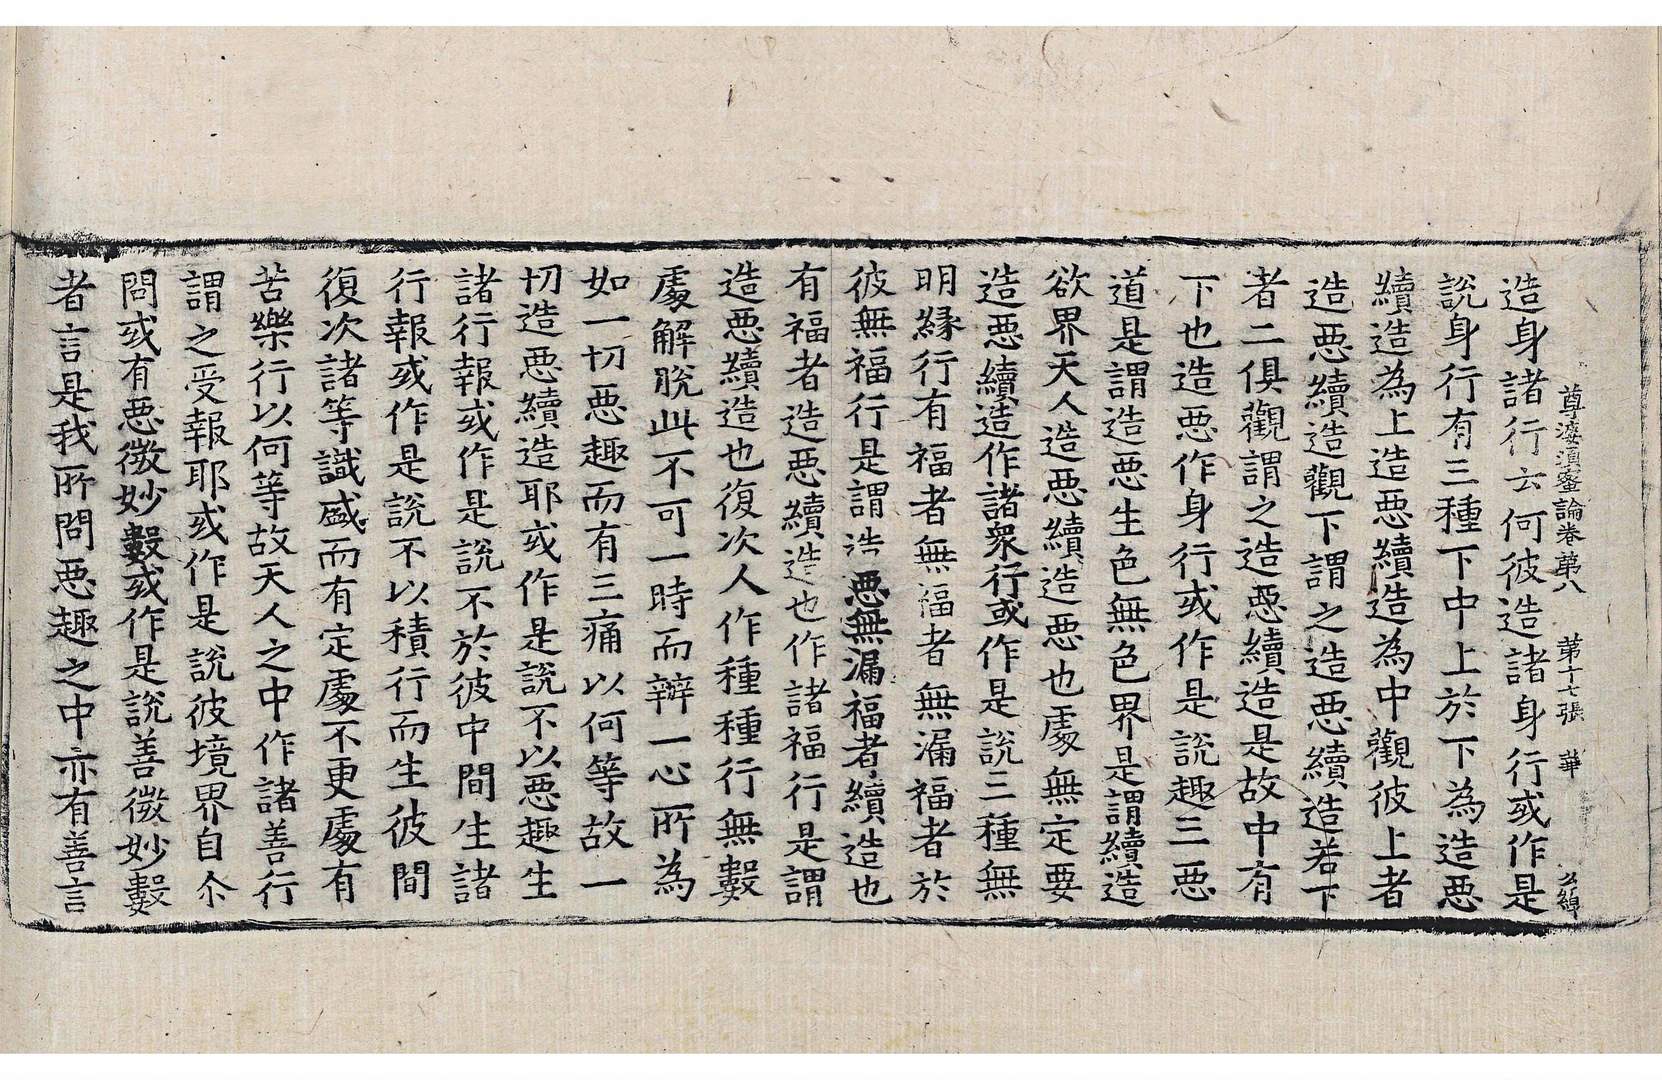 造身諸行云何彼造諸身行或作是
尊婆須蜜論卷第八 第十七張 華
說身行有三種下中上於下為造惡
續造為上造惡續造為中觀彼上者
造惡續造觀下謂之造惡續造若下
者二俱觀謂之造惡續造是故中有
下也造惡作身行或作是說趣三惡
道是謂造惡生色無色界是謂續造
欲界天人造惡續造惡也處無定要
造惡續造作諸眾行或作是說三種無
明緣行有福者無福者無漏福者於
彼無福行是謂造惡無漏福者續造也
有福者造惡續造也作諸福行是謂
造惡續造也復次人作種種行無數
處解脫此不可一時而辦一心所為
如一切惡趣而有三痛以何等故一
切造惡續造耶或作是說不以惡趣生
諸行報或作是說不於彼中間生諸
行報或作是說不以積行而生彼間
復次諸等識盛而有定處不更處有
苦樂行以何等故天人之中作諸善行
謂之受報耶或作是說彼境界自尒
問或有惡微妙數或作是說善微妙數
者言是我所問惡趣之中亦有善言